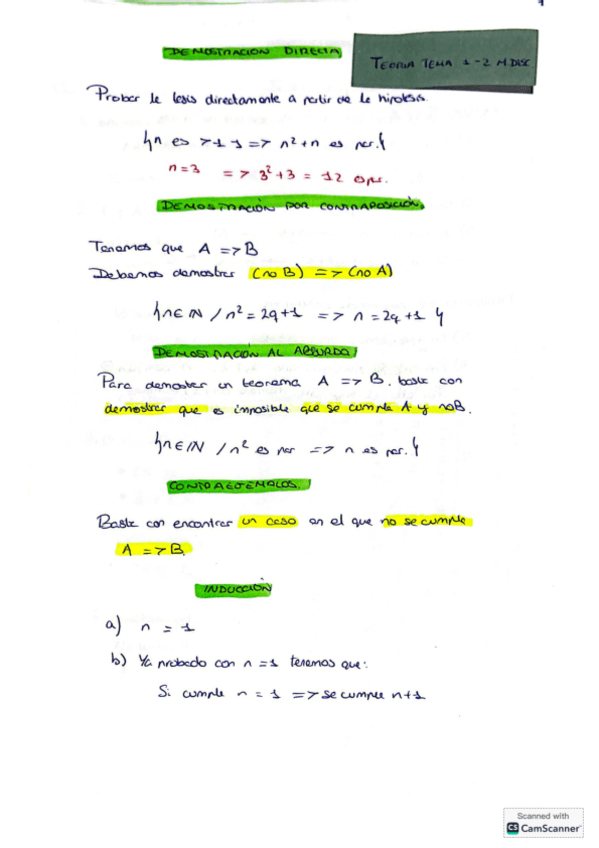 DEMOSTRACION DIRECTA
TEORIA TEMA 1-2 M.DISC
Probar la tesis directamente a partir de la hipotesis.
{n es >1 => n²+n es par.}
n=3 => 3²+3 = 12 es par.
DEMOSTRACIÓN POR CONTRAPOSICIÓN.
Tenemos que A => B
Debemos demostrar (no B) => (no A)
{n∈ℕ / n² = 2q+1 => n = 2q+1}
DEMOSTRACIÓN AL ABSURDO!
Para demostrar un teorema A => B, basta con
demostrar que es imposible que se cumpla A y noB.
{n∈ℕ / n² es par => n es par.}
CONTRAEJEMPLOS.
Basta con encontrar un caso en el que no se cumple
A => B.
INDUCCIÓN
a) n = 1
b) Ya probado con n=1 tenemos que:
Si cumple n = 1 => se cumple n+1
Scanned with
CS CamScanner